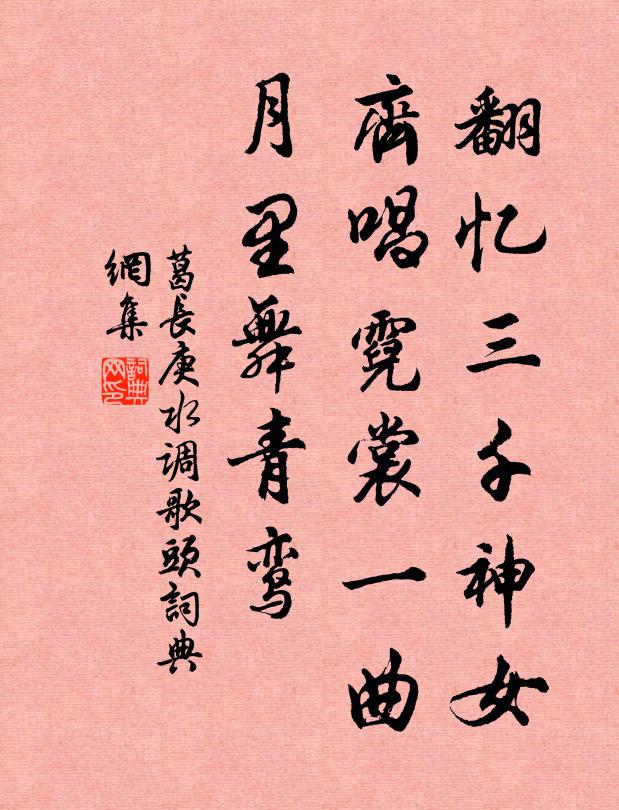 翻忆三千神女
齊唱霓裳一曲
月里舞青鸾
葛長庚水调歌頭詞典
網集
詞典网印